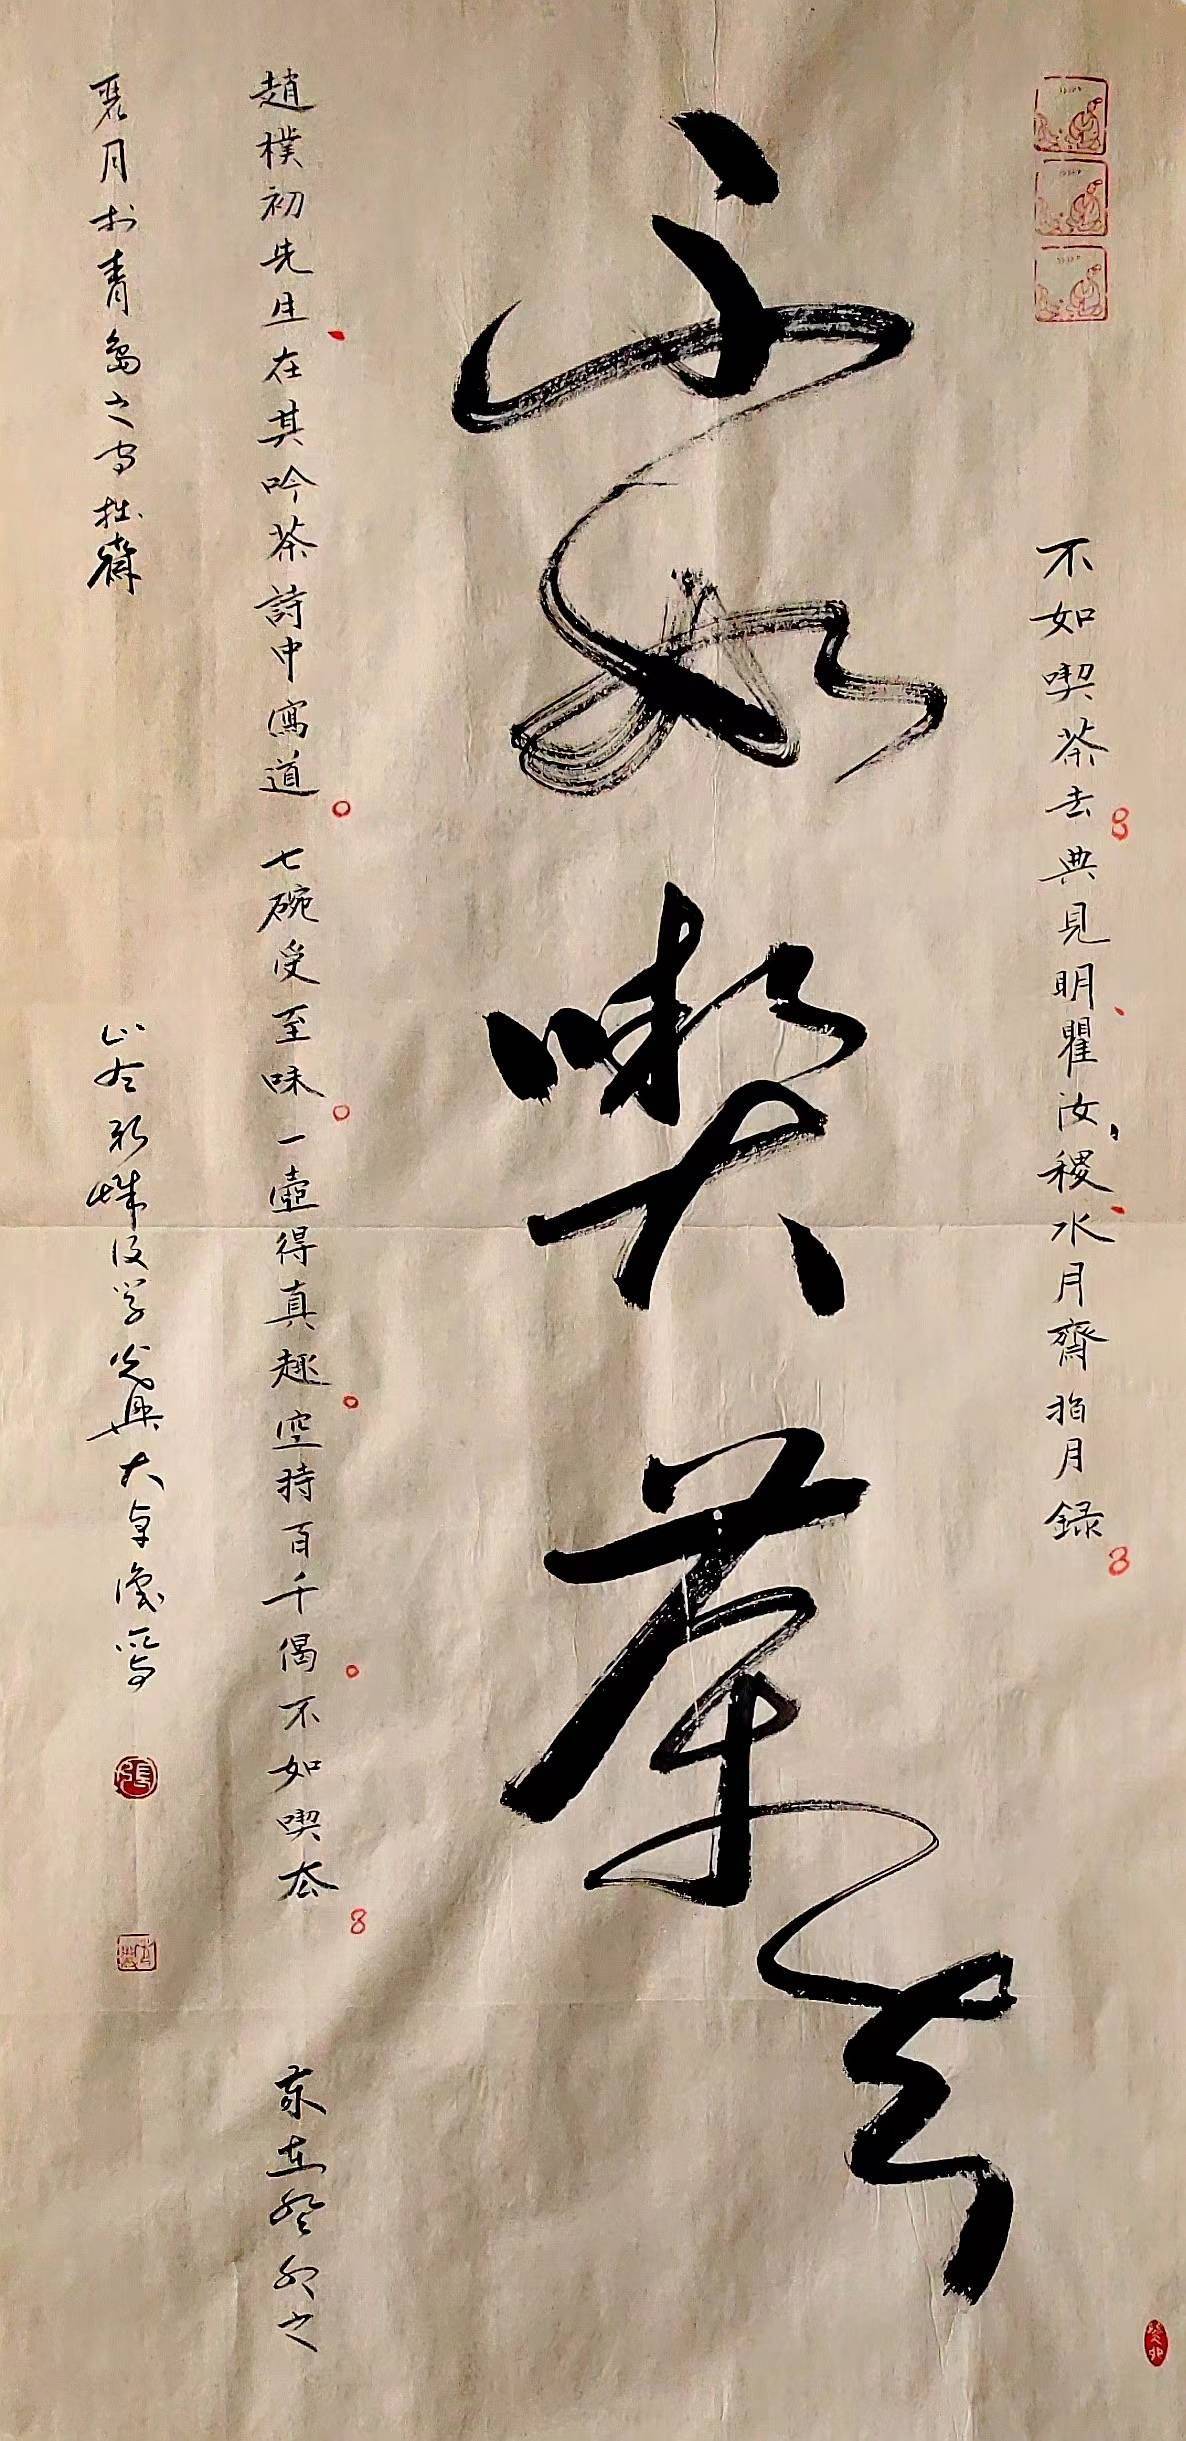 不如喫茶去典見明瞿汝稷水月齋指月録
不如喫茶去
趙樸初先生在其吟茶詩中寫道 七碗受至味一壺得真趣空持百千偈不如喫茶去 歲在癸卯之
月於青島之守拙齋 後學 大
癸卯